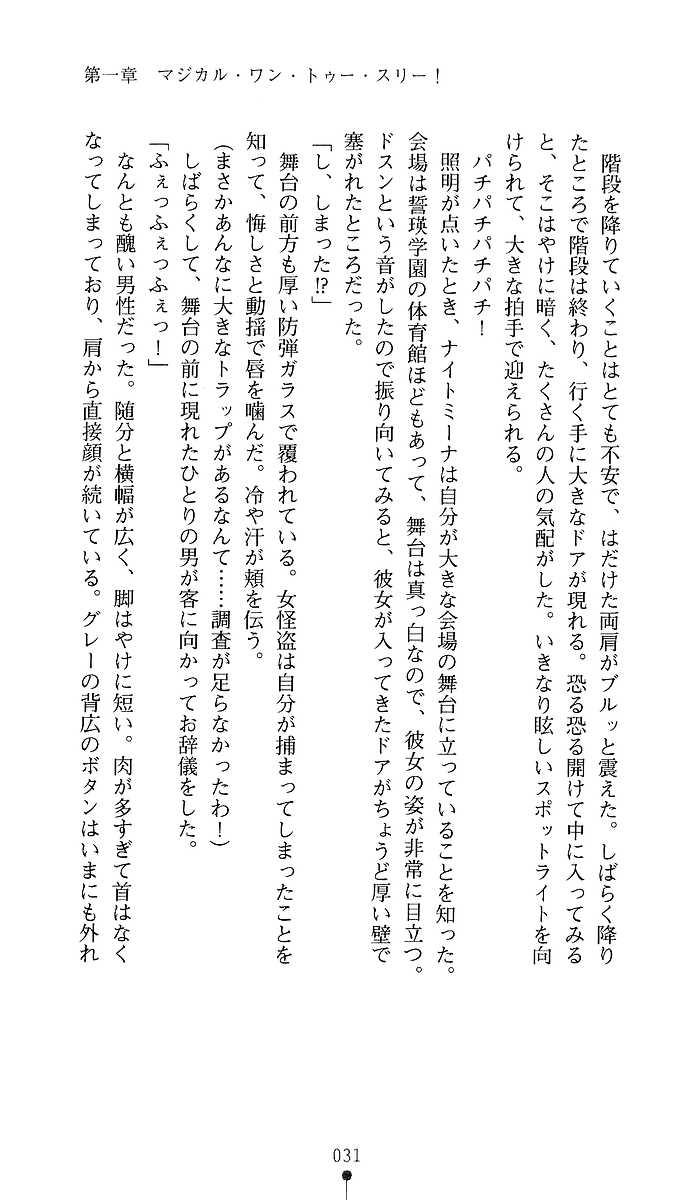 第一章　マジカル・ワン・トゥー・スリー！
　階段を降りていくことはとても不安で、はだけた両肩がブルッと震えた。しばらく降り
たところで階段は終わり、行く手に大きなドアが現れる。恐る恐る開けて中に入ってみる
と、そこはやけに暗く、たくさんの人の気配がした。いきなり眩しいスポットライトを向
けられて、大きな拍手で迎えられる。
　パチパチパチパチ！
　照明が点いたとき、ナイトミーナは自分が大きな会場の舞台に立っていることを知った。
会場は誓瑛学園の体育館ほどもあって、舞台は真っ白なので、彼女の姿が非常に目立つ。
ドスンという音がしたので振り向いてみると、彼女が入ってきたドアがちょうど厚い壁で
塞がれたところだった。
「し、しまった!?」
　舞台の前方も厚い防弾ガラスで覆われている。女怪盗は自分が捕まってしまったことを
知って、悔しさと動揺で唇を噛んだ。冷や汗が頬を伝う。
（まさかあんなに大きなトラップがあるなんて……調査が足らなかったわ！）
　しばらくして、舞台の前に現れたひとりの男が客に向かってお辞儀をした。
「ふぇっふぇっふぇっ！」
　なんとも醜い男性だった。随分と横幅が広く、脚はやけに短い。肉が多すぎて首はなく
なってしまっており、肩から直接顔が続いている。グレーの背広のボタンはいまにも外れ
031